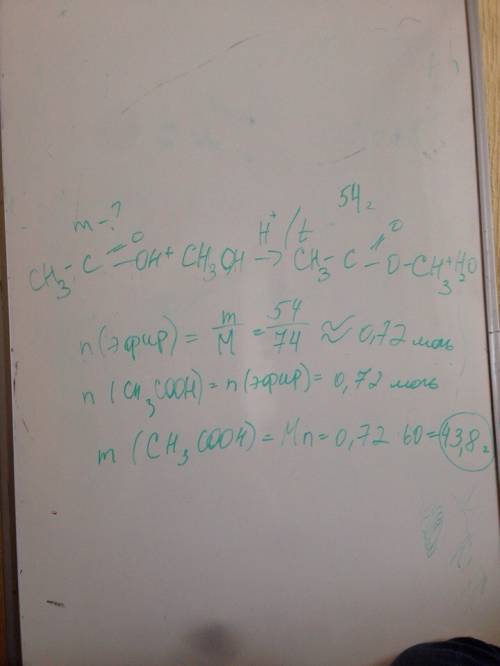 m-? 54г
CH₃-C(=O)-OH + CH₃OH →(H⁺/t) CH₃-C(=O)-O-CH₃ + H₂O
n(эфир) = m/M = 54/74 ≈ 0,72 моль
n(CH₃COOH) = n(эфир) = 0,72 моль
m(CH₃COOH) = Mn = 0,72 60 = 43,8г